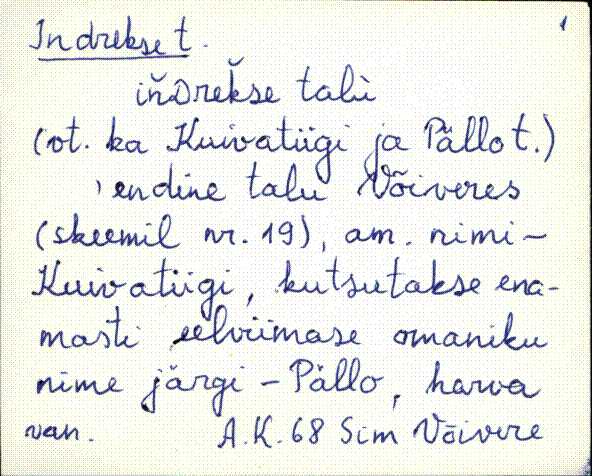 Indrekse t. 1
iňDrekše talu̇
(vt. ka Kuivatiigi ja Pällo t.)
, endine talu Võiveres
(skeemil nr. 19), am. nimi –
Kuivatiigi, kutsutakse ena-
masti eelviimase omaniku
nime järgi – Pällo, harva
van. A.K. 68 Sim Võivere